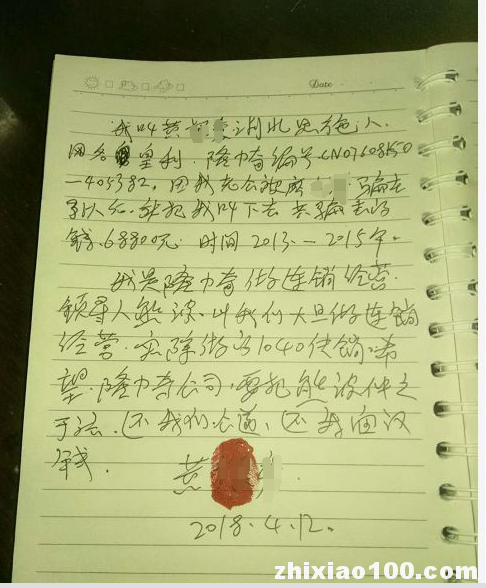 Date
我叫黄 湖北恩施人
网名 皇利. 隆力奇编号. CN07608150
-405382. 因我老公被
就把我叫下去 共骗走的
钱. 68800元. 时间2013.—2015年.
我是隆力奇做连锁经营.
领导人 叫我们大胆做连锁
经营. 实际做的1040传销. 希
望. 隆力奇公司, 要把 绳之
于法. 还我们公道, 还我血汗
钱.
黄
2018.4.12.
zhixiao100.com